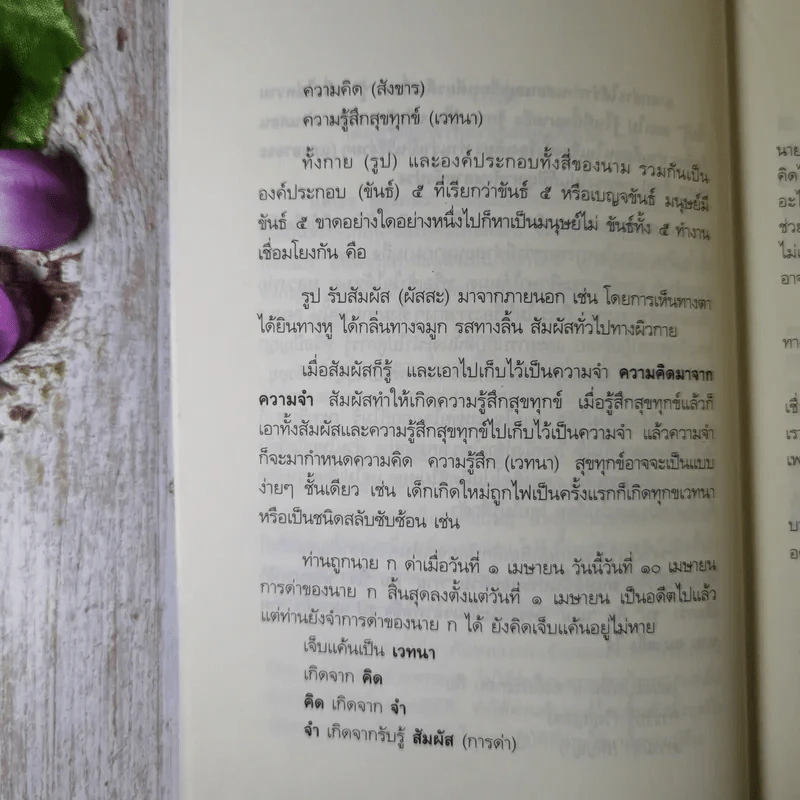 ความคิด (สังขาร)
ความรู้สึกสุขทุกข์ (เวทนา)
ทั้งกาย (รูป) และองค์ประกอบทั้งสี่ของนาม รวมกันเป็น
องค์ประกอบ (ขันธ์) ๕ ที่เรียกว่าขันธ์ ๕ หรือเบญจขันธ์ มนุษย์มี
ขันธ์ ๕ ขาดอย่างใดอย่างหนึ่งไปก็หาเป็นมนุษย์ไม่ ขันธ์ทั้ง ๕ ทำงาน
เชื่อมโยงกัน คือ
รูป รับสัมผัส (ผัสสะ) มาจากภายนอก เช่น โดยการเห็นทางตา
ได้ยินทางหู ได้กลิ่นทางจมูก รสทางลิ้น สัมผัสทั่วไปทางผิวกาย
เมื่อสัมผัสก็รู้ และเอาไปเก็บไว้เป็นความจำ ความคิดมาจาก
ความจำ สัมผัสทำให้เกิดความรู้สึกสุขทุกข์ เมื่อรู้สึกสุขทุกข์แล้วก็
เอาทั้งสัมผัสและความรู้สึกสุขทุกข์ไปเก็บไว้เป็นความจำ แล้วความจำ
ก็จะมากำหนดความคิด ความรู้สึก (เวทนา) สุขทุกข์อาจจะเป็นแบบ
ง่ายๆ ชั้นเดียว เช่น เด็กเกิดใหม่ถูกไฟเป็นครั้งแรกก็เกิดทุกขเวทนา
หรือเป็นชนิดสลับซับซ้อน เช่น
ท่านถูกนาย ก ด่าเมื่อวันที่ ๑ เมษายน วันนี้วันที่ ๑๐ เมษายน
การด่าของนาย ก สิ้นสุดลงตั้งแต่วันที่ ๑ เมษายน เป็นอดีตไปแล้ว
แต่ท่านยังจำการด่าของนาย ก ได้ ยังคิดเจ็บแค้นอยู่ไม่หาย
เจ็บแค้นเป็น เวทนา
เกิดจาก คิด
คิด เกิดจาก จำ
จำ เกิดจากรับรู้ สัมผัส (การด่า)